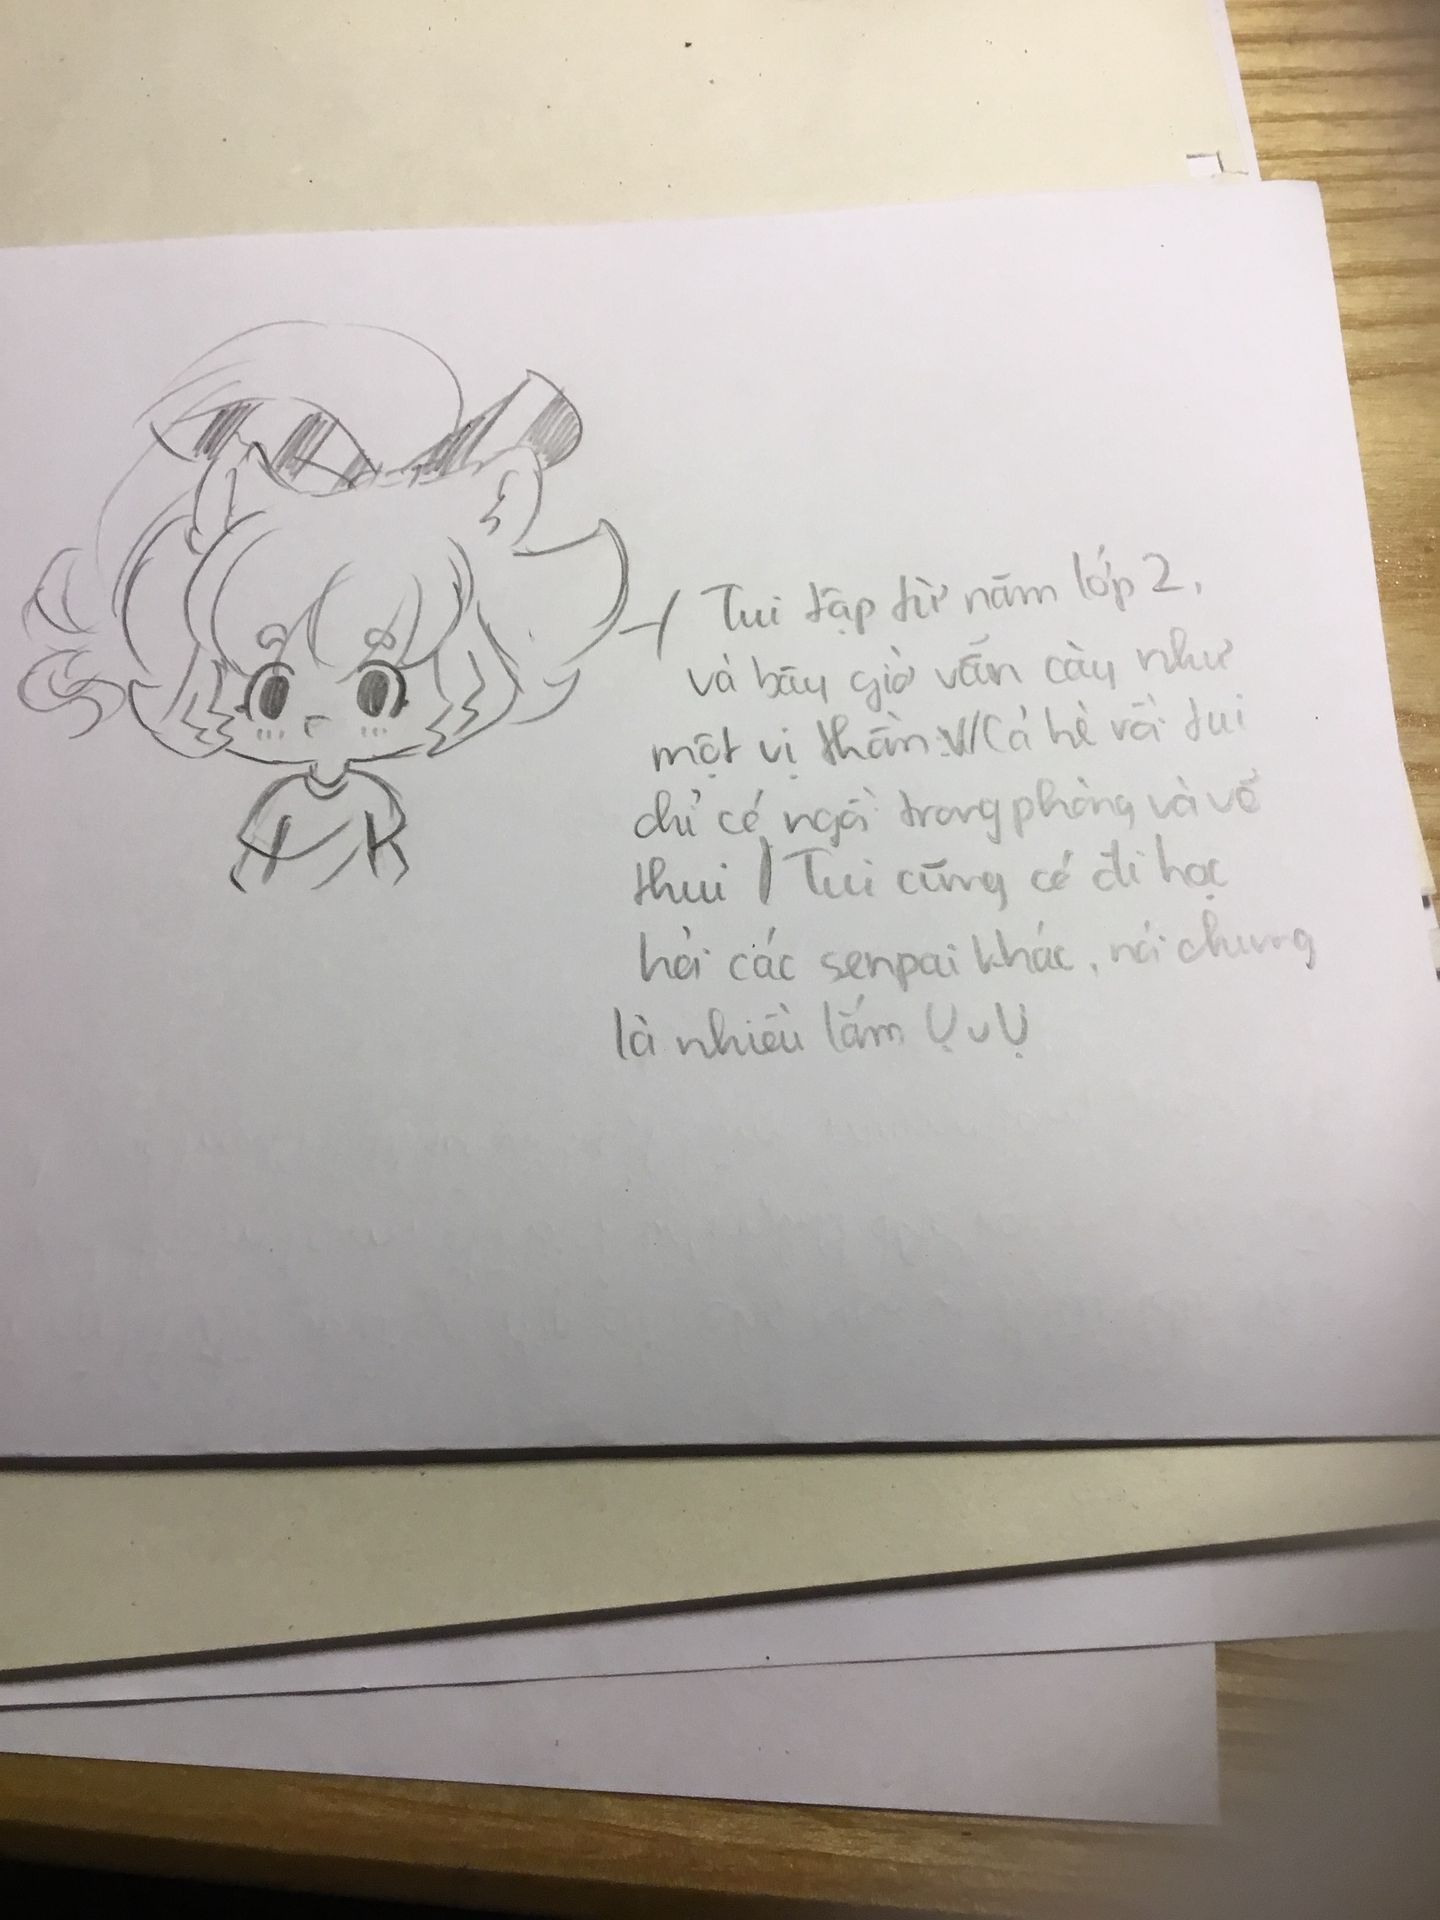 Tui tập từ năm lớp 2,
và bây giờ vẫn cày như
một vị thần :V/Cả hè rồi tui
chỉ có ngồi trong phòng và vẽ
thui / Tui cũng có đi học
hỏi các senpai khác, nói chung
là nhiều lắm ỤvỤ